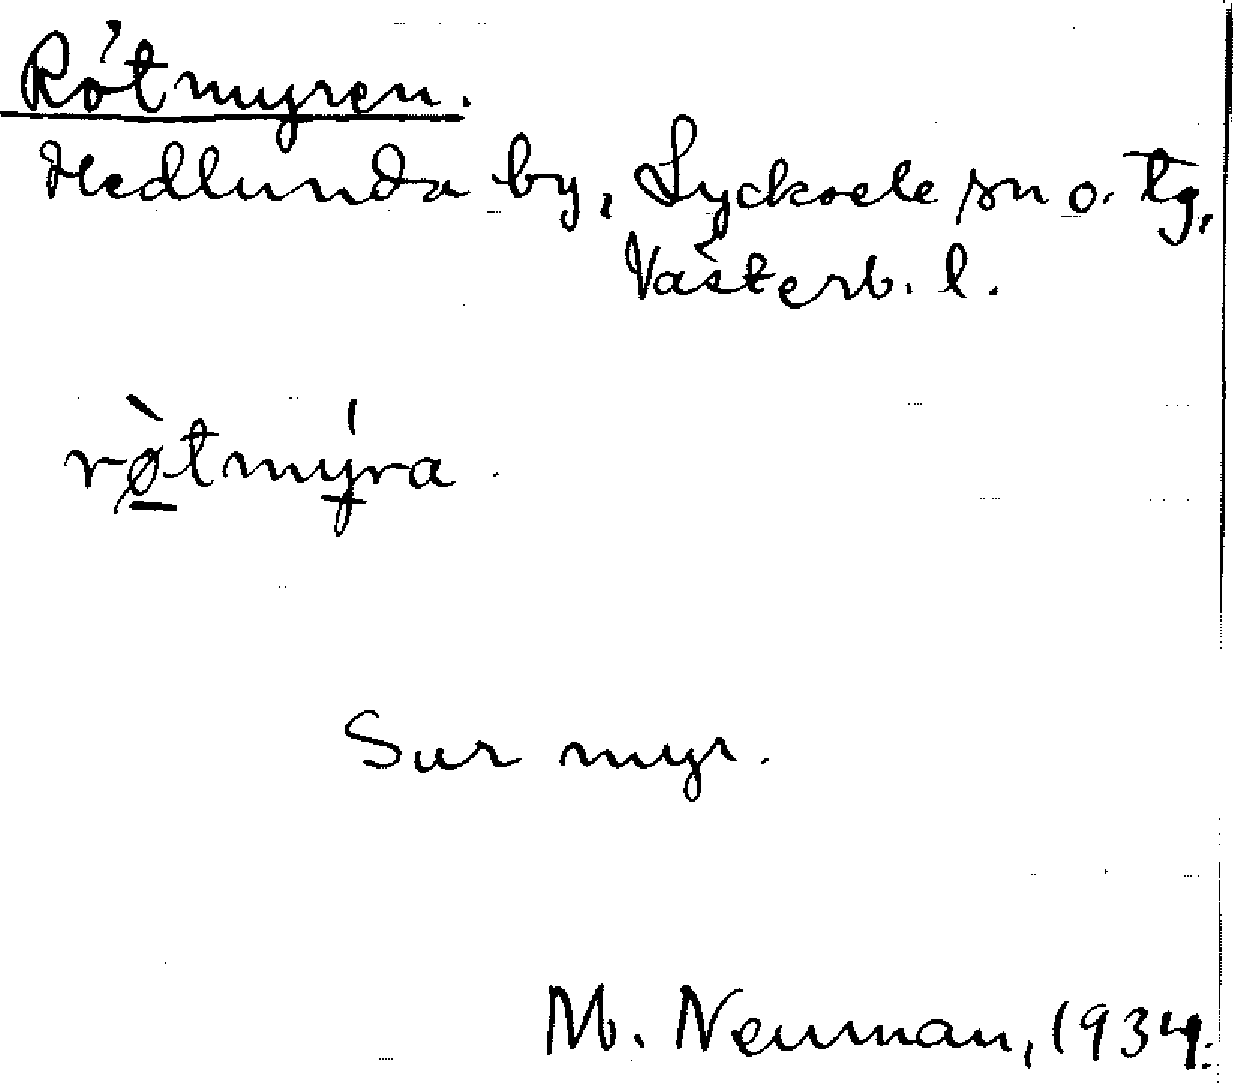 Rötmyren.
Hedlunda by, Lycksele sn o. tg,
Västerb. l.
rø̀tmýra.
Sur myr.
M. Neuman, 1934.